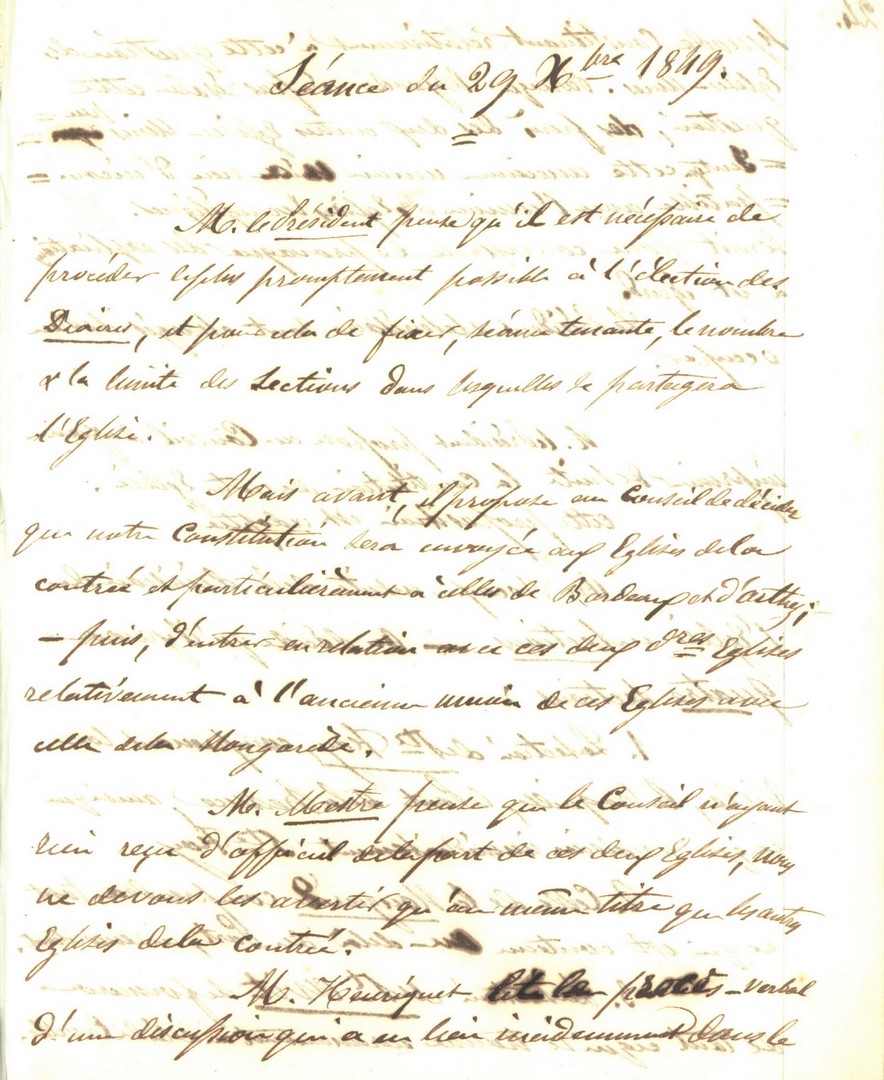 Séance du 29 Xbre 1849.
M. le Président pense qu'il est nécessaire de
procéder le plus promptement possible à l'élection des
Diacres, et pour cela de fixer, séance tenante, le nombre
& la limite des Sections dans lesquelles se partagera
l'Eglise.
Mais avant, il propose au Conseil de décider
que notre Constitution sera envoyée aux Eglises de la
contrée et particulièrement à celles de Bordeaux et d'Orthez;
– puis, d'entrer en relation avec ces deux dres Eglises
relativement à l'ancienne union de ces Eglises avec
celle de la
M. Mestre pense que le Conseil n'ayant
rien reçu d'officiel de la part de ces deux Eglises, nous
ne devons les avertir qu'au même titre que les autres
Eglises de la contrée.
M. Henriquet lit le procès-verbal
d'une discussion qui a eu lieu incidemment dans le